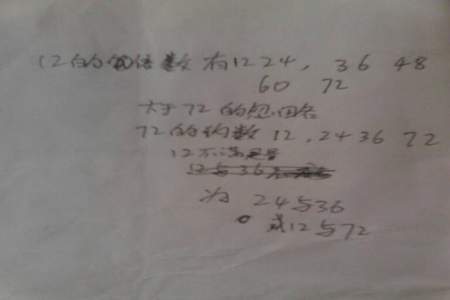 12的倍数有12 24, 36 48
60 72
大于72的忽略
72的约数 12, 24 36 72
12不满足
为 24与36
或12与72